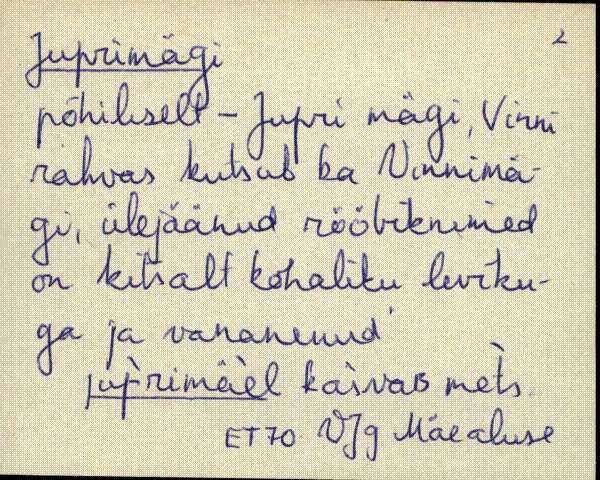 2
Juprimägi
põhiliselt – Jupri mägi, Vinni
rahvas kutsub ka Vinnimä-
gi, ülejäänud rööbiknimed
on kitsalt kohaliku leviku-
ga ja vananenud
jup̀rimäèl kaǹvaʙ met̀s.
ET70 VJg Mäealuse